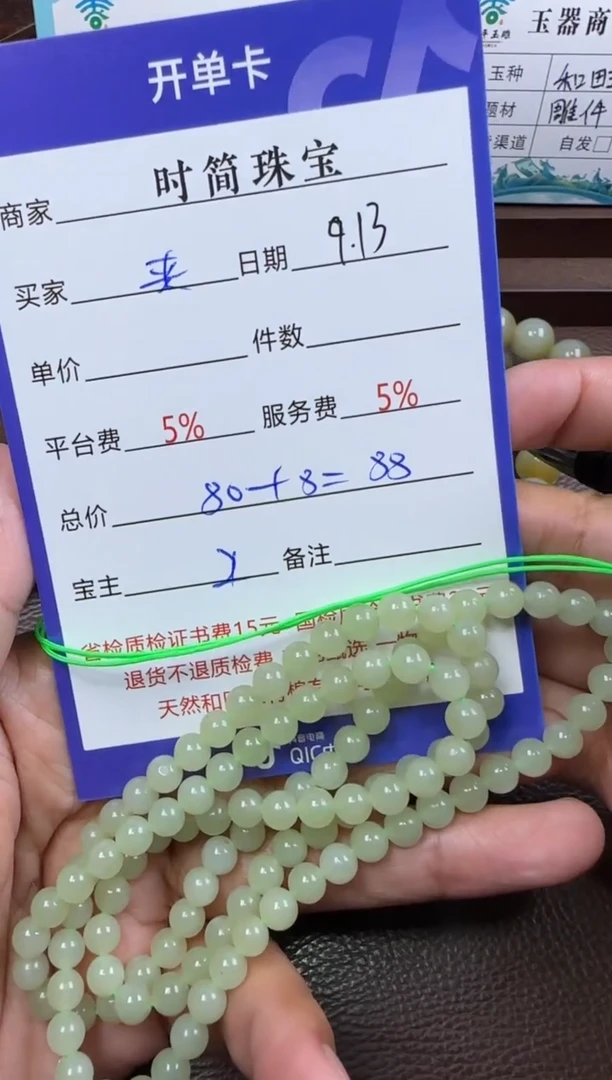 开单卡
商家 时简珠宝
买家 日期 9.13
单价 件数
平台费 5% 服务费 5%
总价 80+8=88
宝主 备注
省检质检证书费15元 国检
退货不退质检费
天然和田
QIC
玉器商
玉种 和田
题材 雕件
渠道 自发□